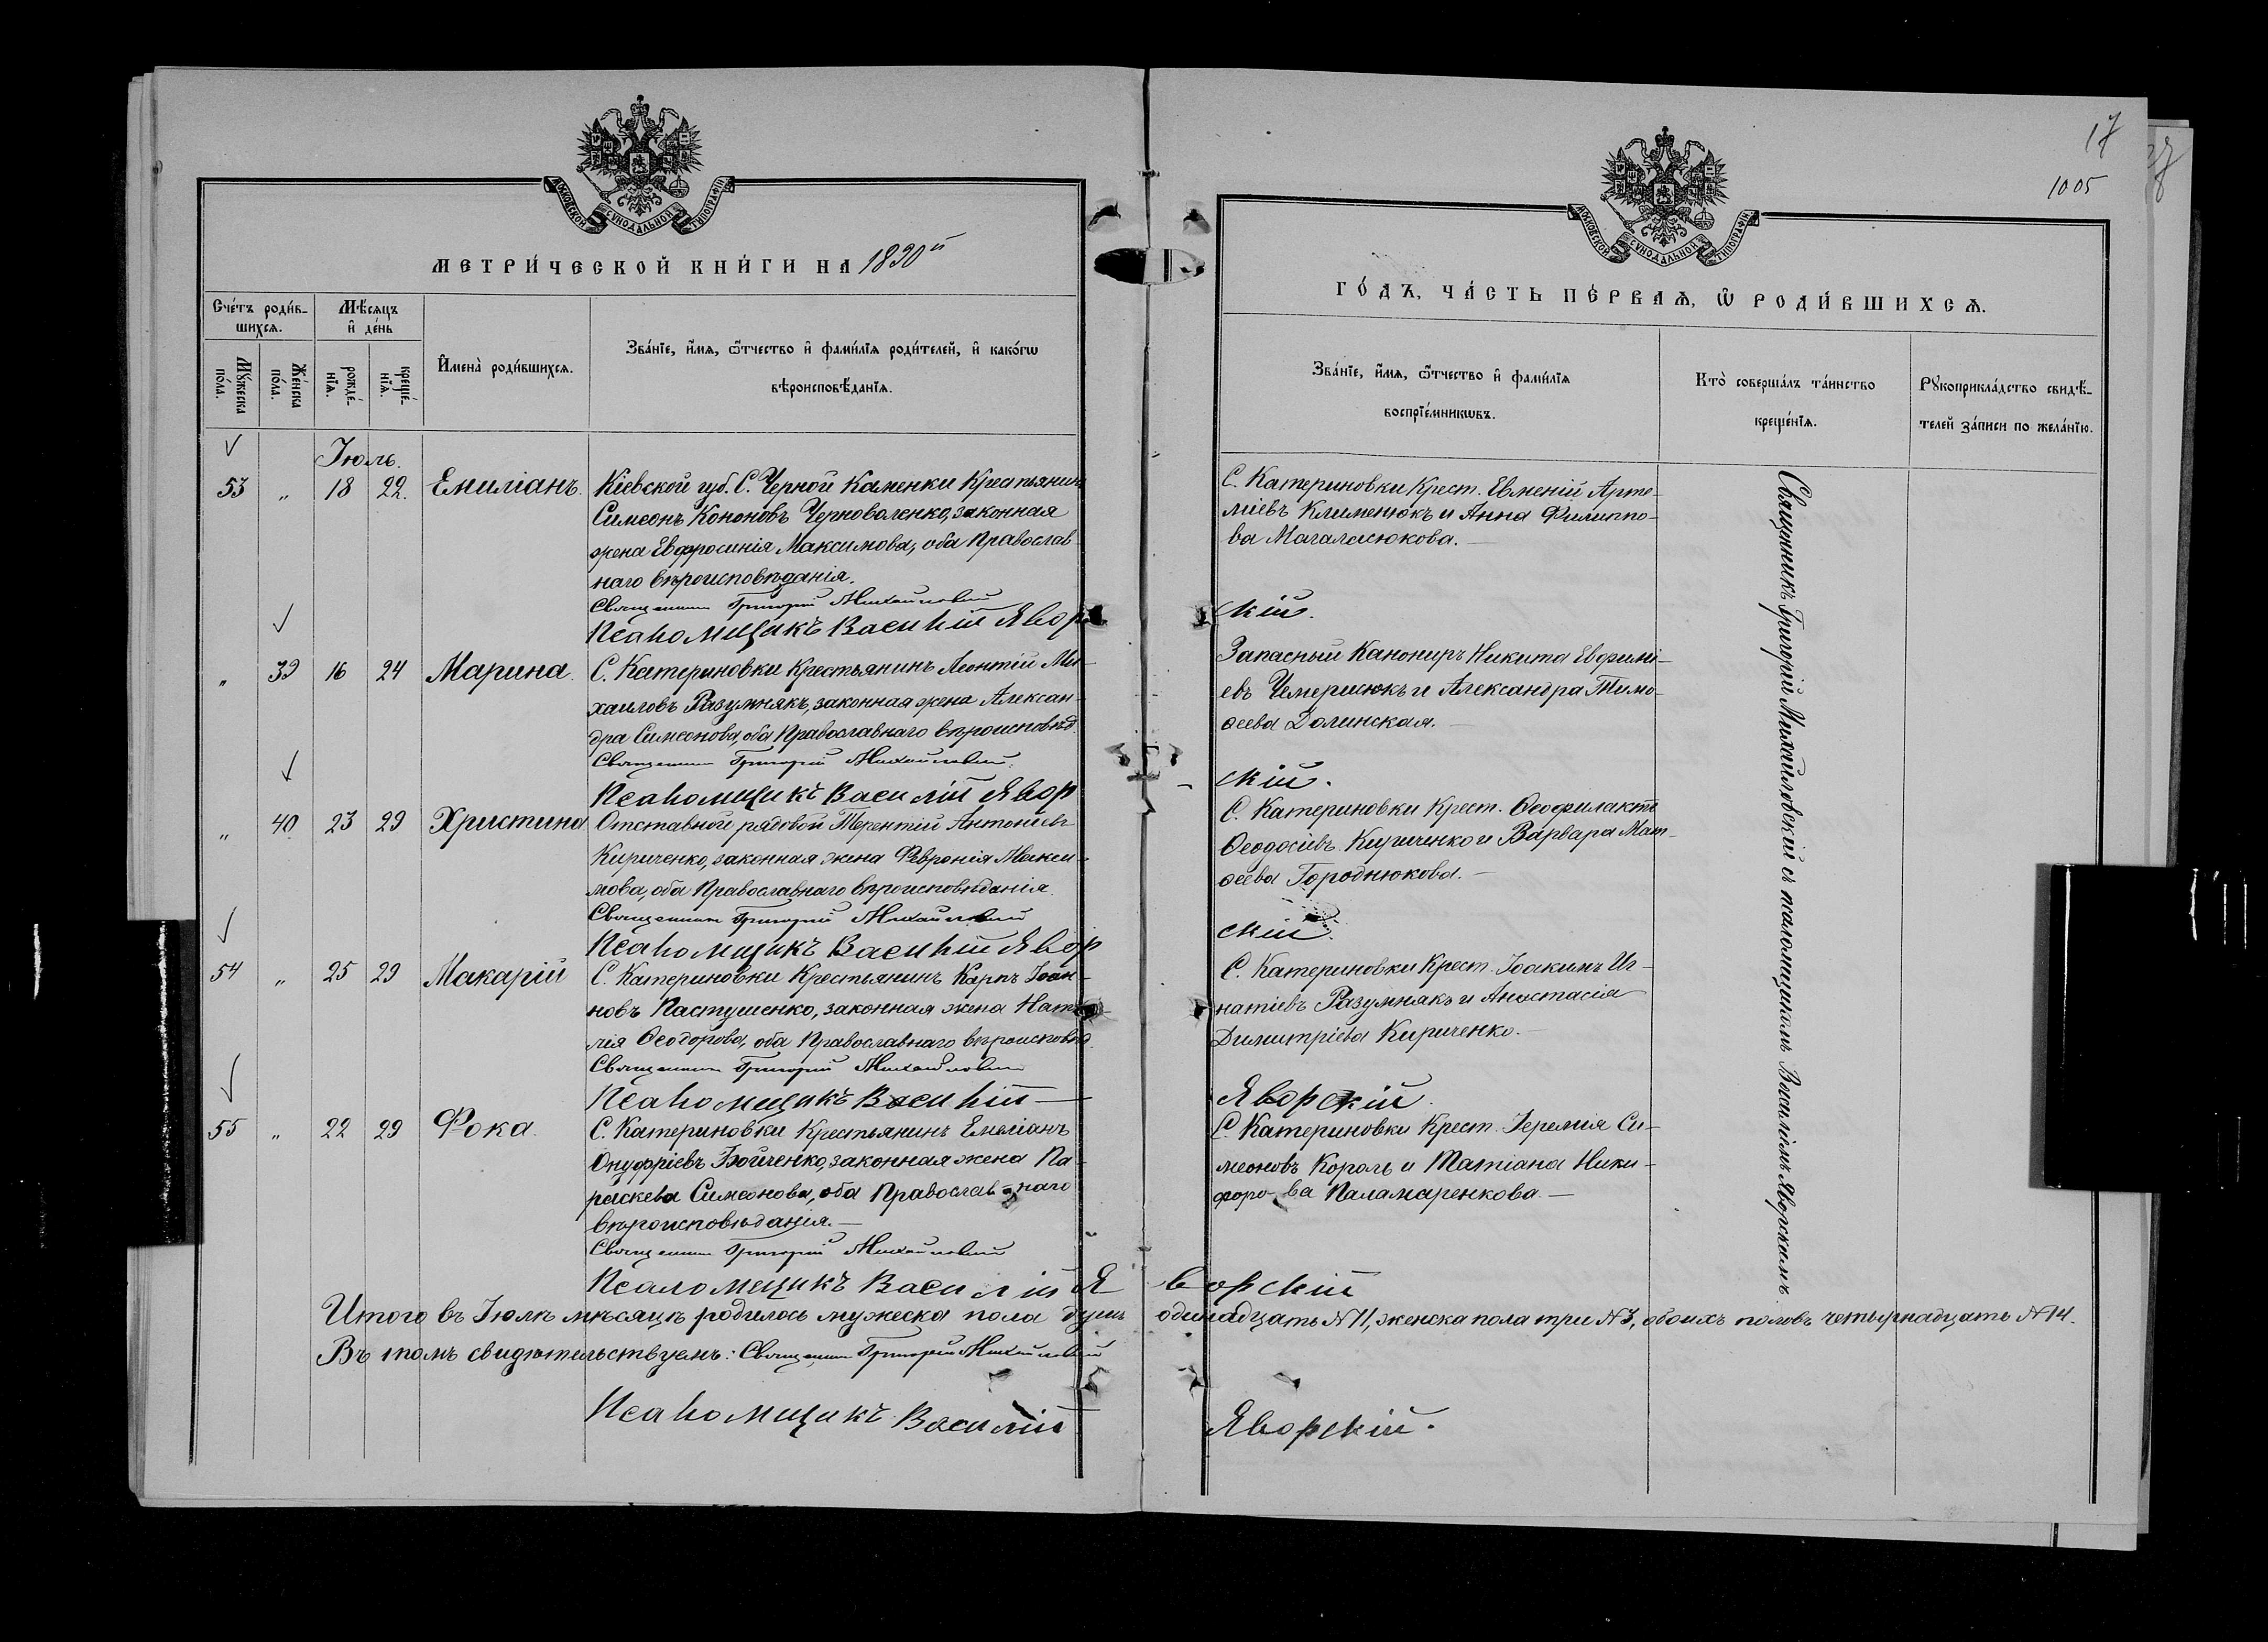 17
1005
МОСКОВСКОЙ СѴНОДАЛЬНОЙ ТИПОГРАФІИ
МОСКОВСКОЙ СѴНОДАЛЬНОЙ ТИПОГРАФІИ
МЕТРИ́ЧЕСКОЙ КНИ́ГИ НА 1890й
ГО́ДЪ, ЧА́СТЬ ПЕ́РВАѦ, Ѡ҆ РОДИ́ВШИХСѦ.
Сче́тъ роди́в-
шихсѧ.
Мѣ́сѧцъ
и҆ де́нь
Мꙋ́жеска по́ла.
Же́нска по́ла.
рожде́-
нїѧ.
креще́-
нїѧ.
И҆мена̀ роди́вшихсѧ.
Зва́нїе, и҆́мѧ, ѻ҆́тчество и҆ фами́лїѧ роди́телей, и҆ како́гѡ
вѣроисповѣ́данїѧ.
Зва́нїе, и҆́мѧ, ѻ҆́тчество и҆ фами́лїѧ
воспрїе́мникѡвъ.
Кто̀ соверша́лъ та́инство
креще́нїѧ.
Рꙋкоприкла́дство свидѣ́-
телей за́писи по жела́нїю.
Іюль.
53 „ 18 22. Емиліанъ. Кіевской губ. С. Черной Каменки Крестьянинъ
Симеонъ Кононовъ Черноволенко, законная
жена Евфросинія Максимова, оба Православ
наго вѣроисповѣданія.
Священникъ Григорій Михайловскій
Псаломщикъ Василій Явор
С. Катериновки Крест. Евменій Арте-
міевъ Клименюкъ и Анна Филиппо-
ва Магаласюкова.
скій.
„ 39 16 24 Марина. С. Катериновки Крестьянинъ Леонтій Ми-
хаиловъ Разумнякъ, законная жена Алексан-
дра Симеонова, оба Православнаго вѣроисповѣд.
Священникъ Григорій Михайловскій
Псаломщикъ Василій Явор
Запасный Канониръ Никита Евфимі-
евъ Чемерисюкъ и Александра Тимо-
ѳеева Долинская.
скій.
„ 40 23 29 Христина Отставной рядовой Терентій Антоніевъ
Кириченко, законная жена Февронія Макси-
мова, оба Православнаго вѣроисповѣданія.
Священникъ Григорій Михайловскій
Псаломщикъ Василій Явор
С. Катериновки Крест. Ѳеофилактъ
Ѳеодосіевъ Кириченко и Варвара Мат-
ѳеева Городнюкова.
скій.
54 „ 25 29 Макарій С. Катериновки Крестьянинъ Карпъ Іоан-
новъ Пастушенко, законная жена Ната-
лія Ѳеодорова, оба Православнаго вѣроисповѣд.
Священникъ Григорій Михайловскій
Псаломщикъ Василій
С. Катериновки Крест. Іоакимъ Иг-
натіевъ Разумнякъ и Анастасія
Димитріева Кириченко.
Яворскій.
55 „ 22 29 Фока. С. Катериновки Крестьянинъ Емеліанъ
Онуфріевъ Бойченко, законная жена Па-
раскева Симеонова, оба Православ-наго
вѣроисповѣданія.
Священникъ Григорій Михайловскій
Псаломщикъ Василій Я
С. Катериновки Крест. Іеремія Си-
меоновъ Король и Татіана Ники-
форо-ва Паламаренкова.
ворскій
Священникъ Григорій Михайловскій съ псаломщикомъ Василіемъ Яворскимъ
Итого въ Іюлѣ мѣсяцѣ родилось мужеска пола душъ одинадцать №11, женска пола три №3, обоихъ половъ четырнадцать №14.
Въ томъ свидѣтельствуемъ: Священникъ Григорій Михайловскій
Псаломщикъ Василій Яворскій.